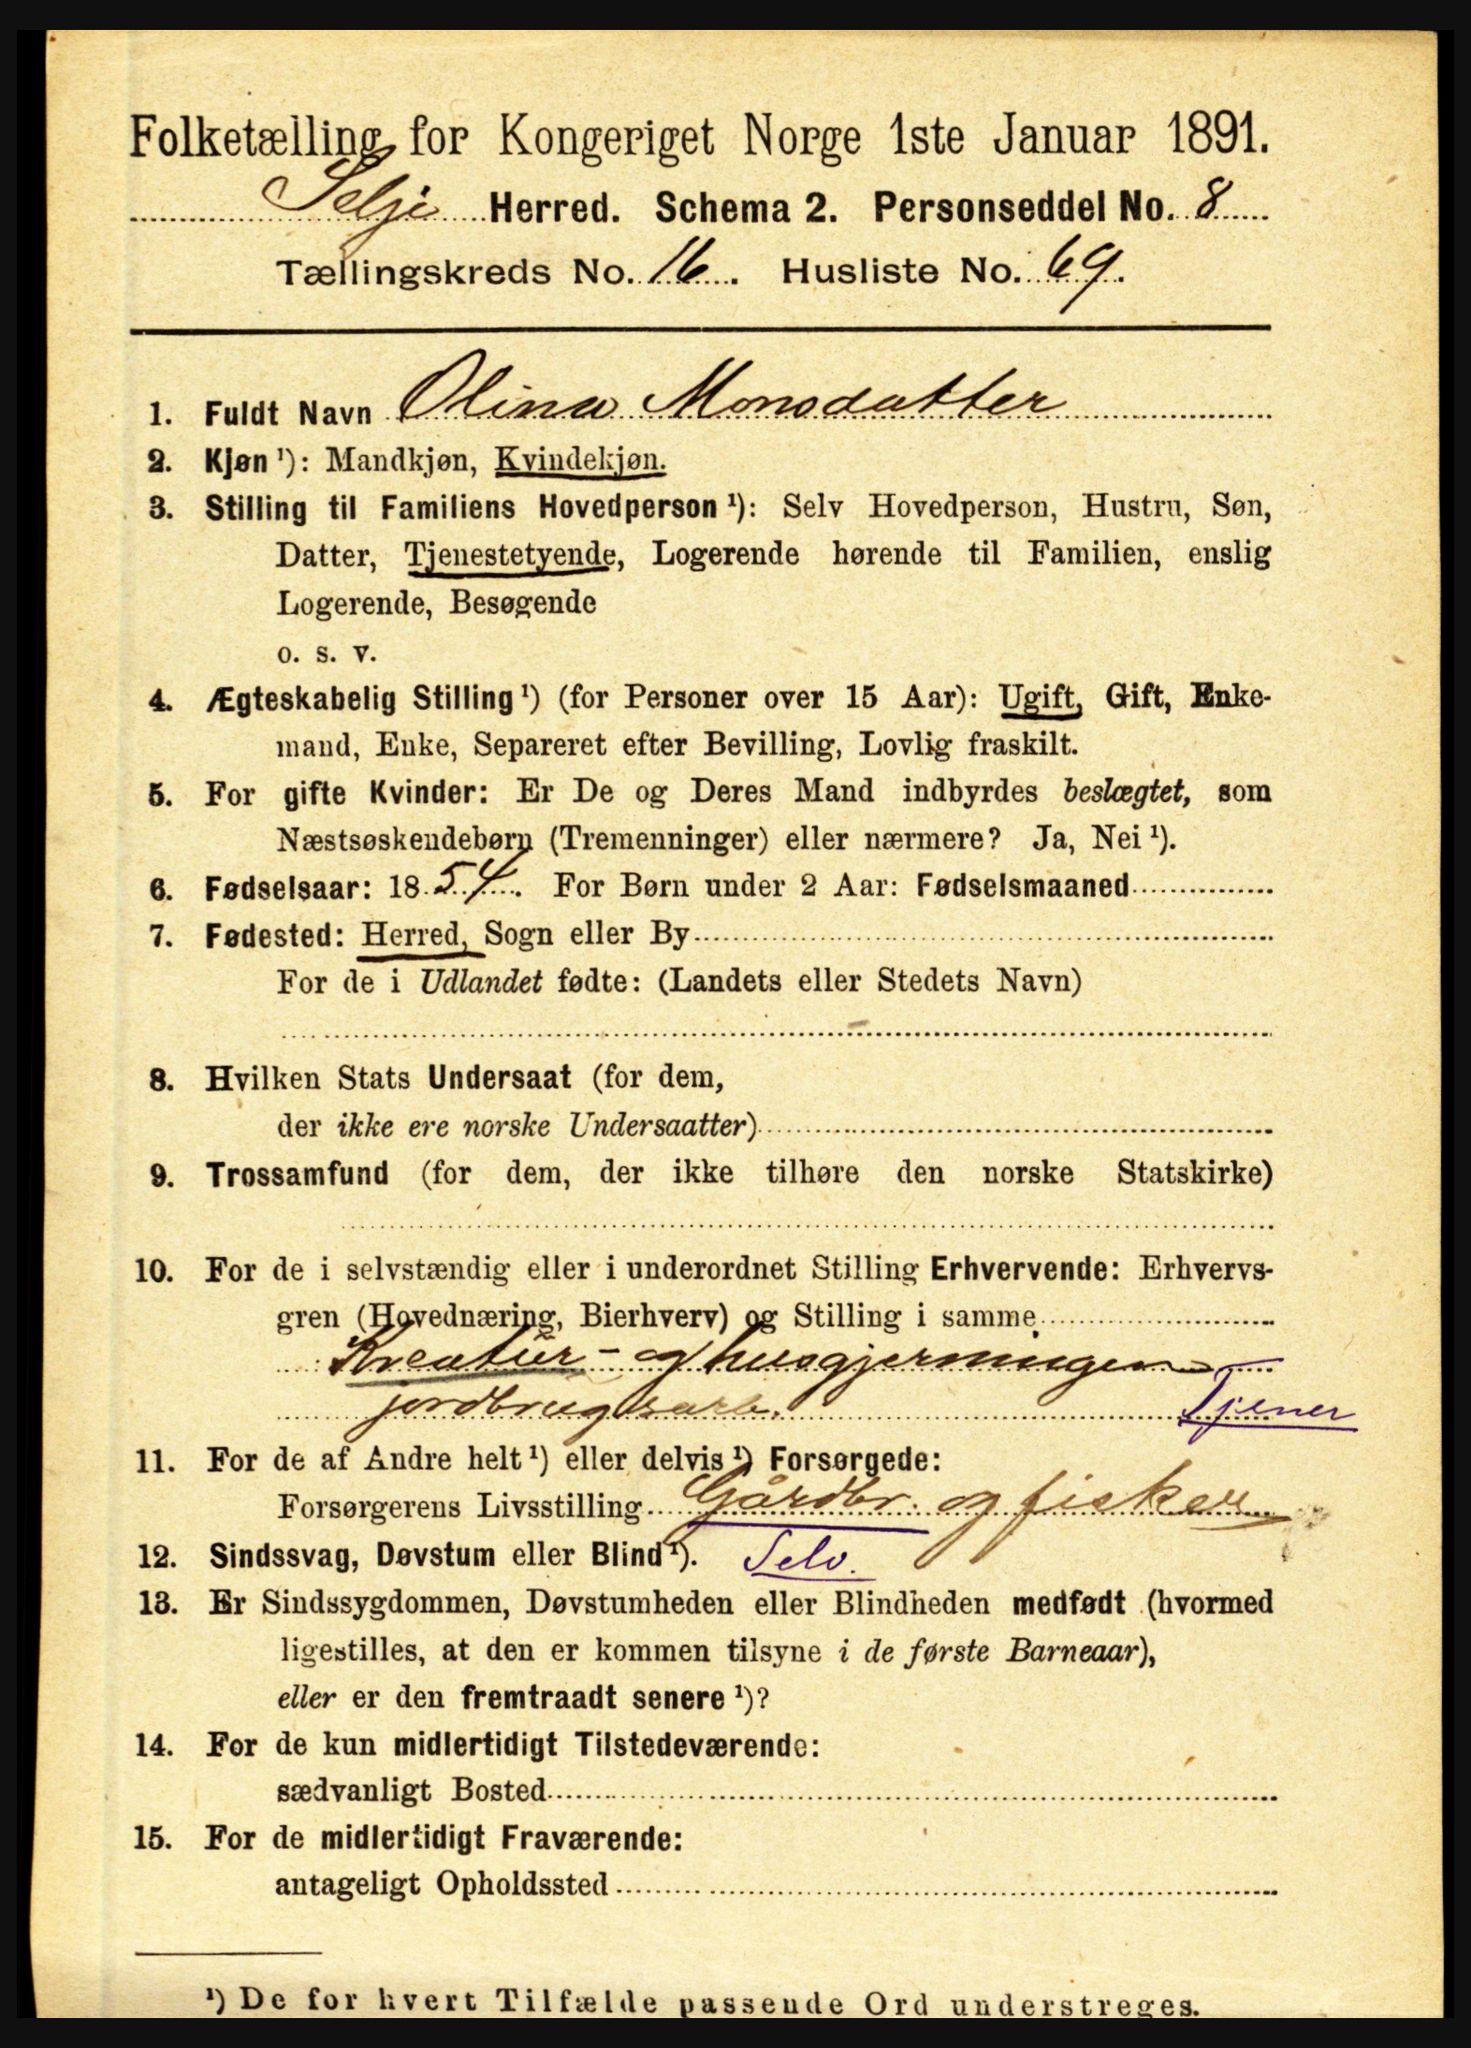 Folketælling for Kongeriget Norge 1ste Januar 1891.
Selje Herred. Schema 2. Personseddel No. 8
Tællingskreds No. 16. Husliste No. 69.
1. Fuldt Navn Olina Monsdatter
2. Kjøn ¹): Mandkjøn, Kvindekjøn.
3. Stilling til Familiens Hovedperson ¹): Selv Hovedperson, Hustru, Søn,
Datter, Tjenestetyende, Logerende hørende til Familien, enslig
Logerende, Besøgende
o. s. v.
4. Ægteskabelig Stilling ¹) (for Personer over 15 Aar): Ugift, Gift, Enke-
mand, Enke, Separeret efter Bevilling, Lovlig fraskilt.
5. For gifte Kvinder: Er De og Deres Mand indbyrdes beslægtet, som
Næstsøskendebørn (Tremenninger) eller nærmere? Ja, Nei ¹).
6. Fødselsaar: 1854. For Børn under 2 Aar: Fødselsmaaned
7. Fødested: Herred, Sogn eller By
For de i Udlandet fødte: (Landets eller Stedets Navn)
8. Hvilken Stats Undersaat (for dem,
der ikke ere norske Undersaatter)
9. Trossamfund (for dem, der ikke tilhøre den norske Statskirke)
10. For de i selvstændig eller i underordnet Stilling Erhvervende: Erhvervs-
gren (Hovednæring, Bierhverv) og Stilling i samme
Kreatur- og husgjerningen
jordbrugsarb. Tjener
11. For de af Andre helt ¹) eller delvis ¹) Forsørgede:
Forsørgerens Livsstilling Gårdbr. og fisker
12. Sindssvag, Døvstum eller Blind ¹). Selv.
13. Er Sindssygdommen, Døvstumheden eller Blindheden medfødt (hvormed
ligestilles, at den er kommen tilsyne i de første Barneaar),
eller er den fremtraadt senere ¹)?
14. For de kun midlertidigt Tilstedeværende:
sædvanligt Bosted
15. For de midlertidigt Fraværende:
antageligt Opholdssted
¹) De for hvert Tilfælde passende Ord understreges.